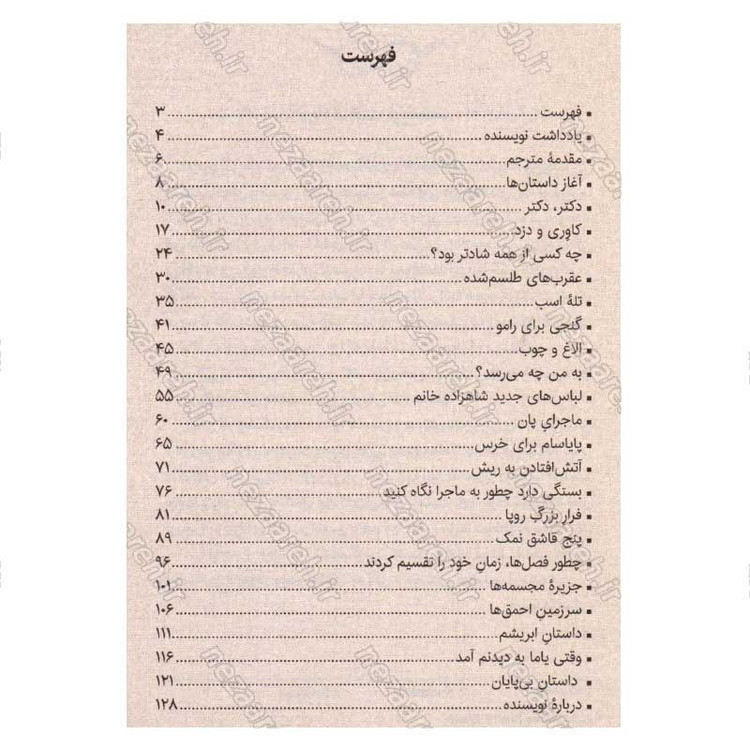 فهرست
▪ فهرست ........ ۳
▪ یادداشت نویسنده ........ ۴
▪ مقدمهٔ مترجم ........ ۶
▪ آغاز داستان‌ها ........ ۸
▪ دکتر، دکتر ........ ۱۰
▪ کاوِری و دزد ........ ۱۷
▪ چه کسی از همه شادتر بود؟ ........ ۲۴
▪ عقرب‌های طلسم‌شده ........ ۳۰
▪ تلهٔ اسب ........ ۳۵
▪ گنجی برای رامو ........ ۴۱
▪ الاغ و چوب ........ ۴۵
▪ به من چه می‌رسد؟ ........ ۴۹
▪ لباس‌های جدید شاهزاده خانم ........ ۵۵
▪ ماجرایِ پان ........ ۶۰
▪ پایاسام برای خرس ........ ۶۵
▪ آتش‌افتادن به ریش ........ ۷۱
▪ بستگی دارد چطور به ماجرا نگاه کنید ........ ۷۶
▪ فرارِ بزرگِ روپا ........ ۸۱
▪ پنج قاشق نمک ........ ۸۹
▪ چطور فصل‌ها، زمانِ خود را تقسیم کردند ........ ۹۶
▪ جزیرهٔ مجسمه‌ها ........ ۱۰۱
▪ سرزمینِ احمق‌ها ........ ۱۰۶
▪ داستانِ ابریشم ........ ۱۱۱
▪ وقتی یاما به دیدنم آمد ........ ۱۱۶
▪ داستانِ بی‌پایان ........ ۱۲۱
▪ دربارهٔ نویسنده ........ ۱۲۸
nezaareh.ir